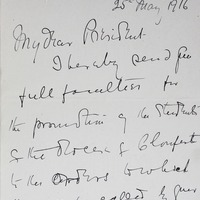 25th May 1916
My dear President
I hereby send you
full faculties for
the promotion of the students
of the Diocese of Clonfert
to the Orders to which
called by you